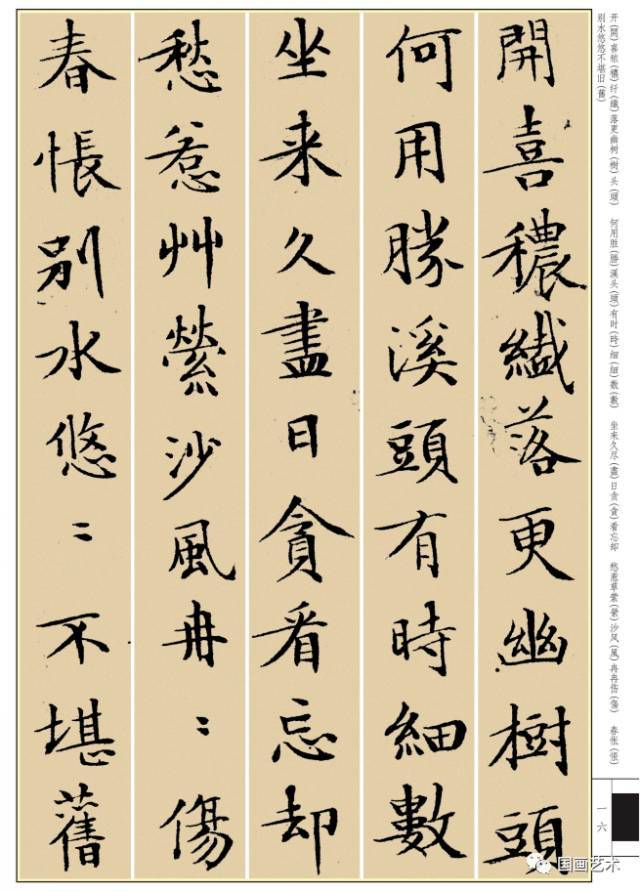 开(開)喜秾(穠)纤(纖)落更幽树(樹)头(頭) 何用胜(勝)溪头(頭)有时(時)细(細)数(數) 坐来久尽(盡)日贪(貪)看忘却 愁惹草萦(縈)沙风(風)冉冉伤(傷) 春怅(悵)
别水悠悠不堪旧(舊)
開喜穠纖落更幽樹頭
何用勝溪頭有時細數
坐来久盡日貪看忘却
愁惹艸縈沙風冉〻傷
春悵别水悠〻不堪舊
一六
国画艺术